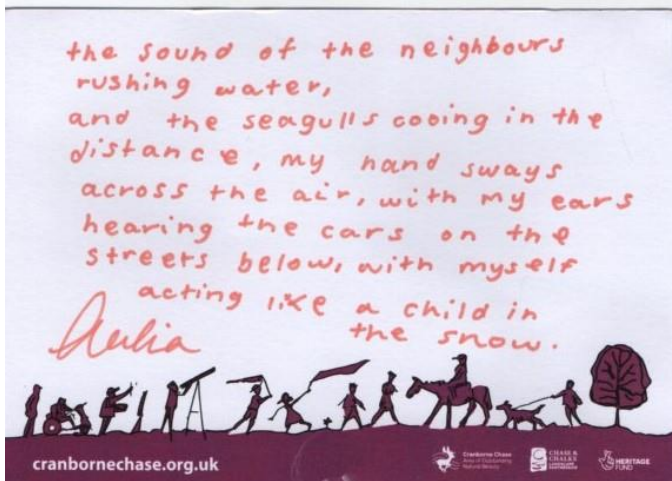 the sound of the neighbours
rushing water,
and the seagulls cooing in the
distance, my hand sways
across the air, with my ears
hearing the cars on the
streets below, with myself
acting like a child in
the snow.
cranbornechase.org.uk
Cranborne Chase
Area of Outstanding
Natural Beauty
CHASE &
CHALKE
LANDSCAPE
PARTNERSHIP
HERITAGE
FUND